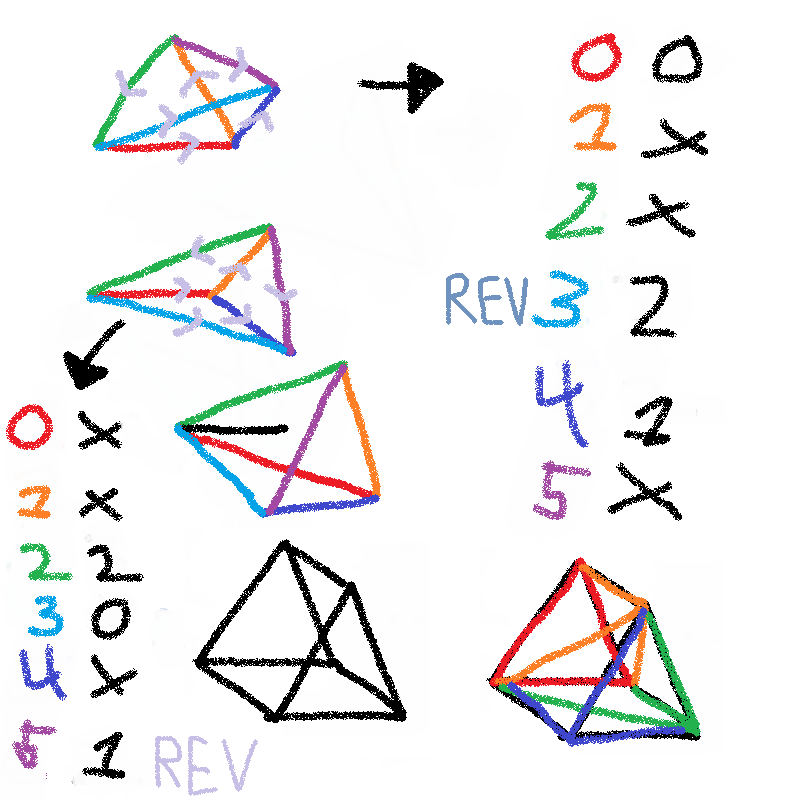 0 0
1 X
2 X
REV 3 2
4 1
5 X
0 X
1 X
2 2
3 0
4 X
5 1 REV